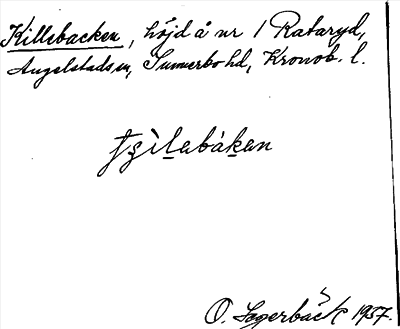 Killebacken, höjd å nr 1 Rataryd,
Angelstads sn, Sunnerbo hd, Kronob. l.
O. Sagerbäck 1937.